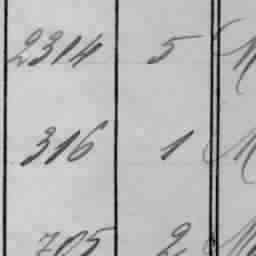 2314 5 M
316 1 M
705 2 M